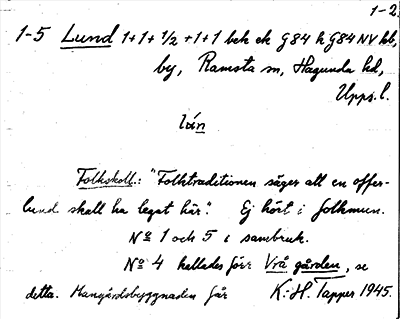 1-2.
1-5 Lund 1+1+1/2+1+1 bek ek G84 h G84 NV bl,
by, Ramsta sn, Hagunda hd,
Upps. l.
lún
Folkskoll.: "Folktraditionen säger att en offer-
lund skall ha legat här." Ej hört i folkmun.
No 1 och 5 i sambruk.
No 4 kallades förr Vrå gården, se
detta. Mangårdsbyggnaden får K. H. Tapper 1945.